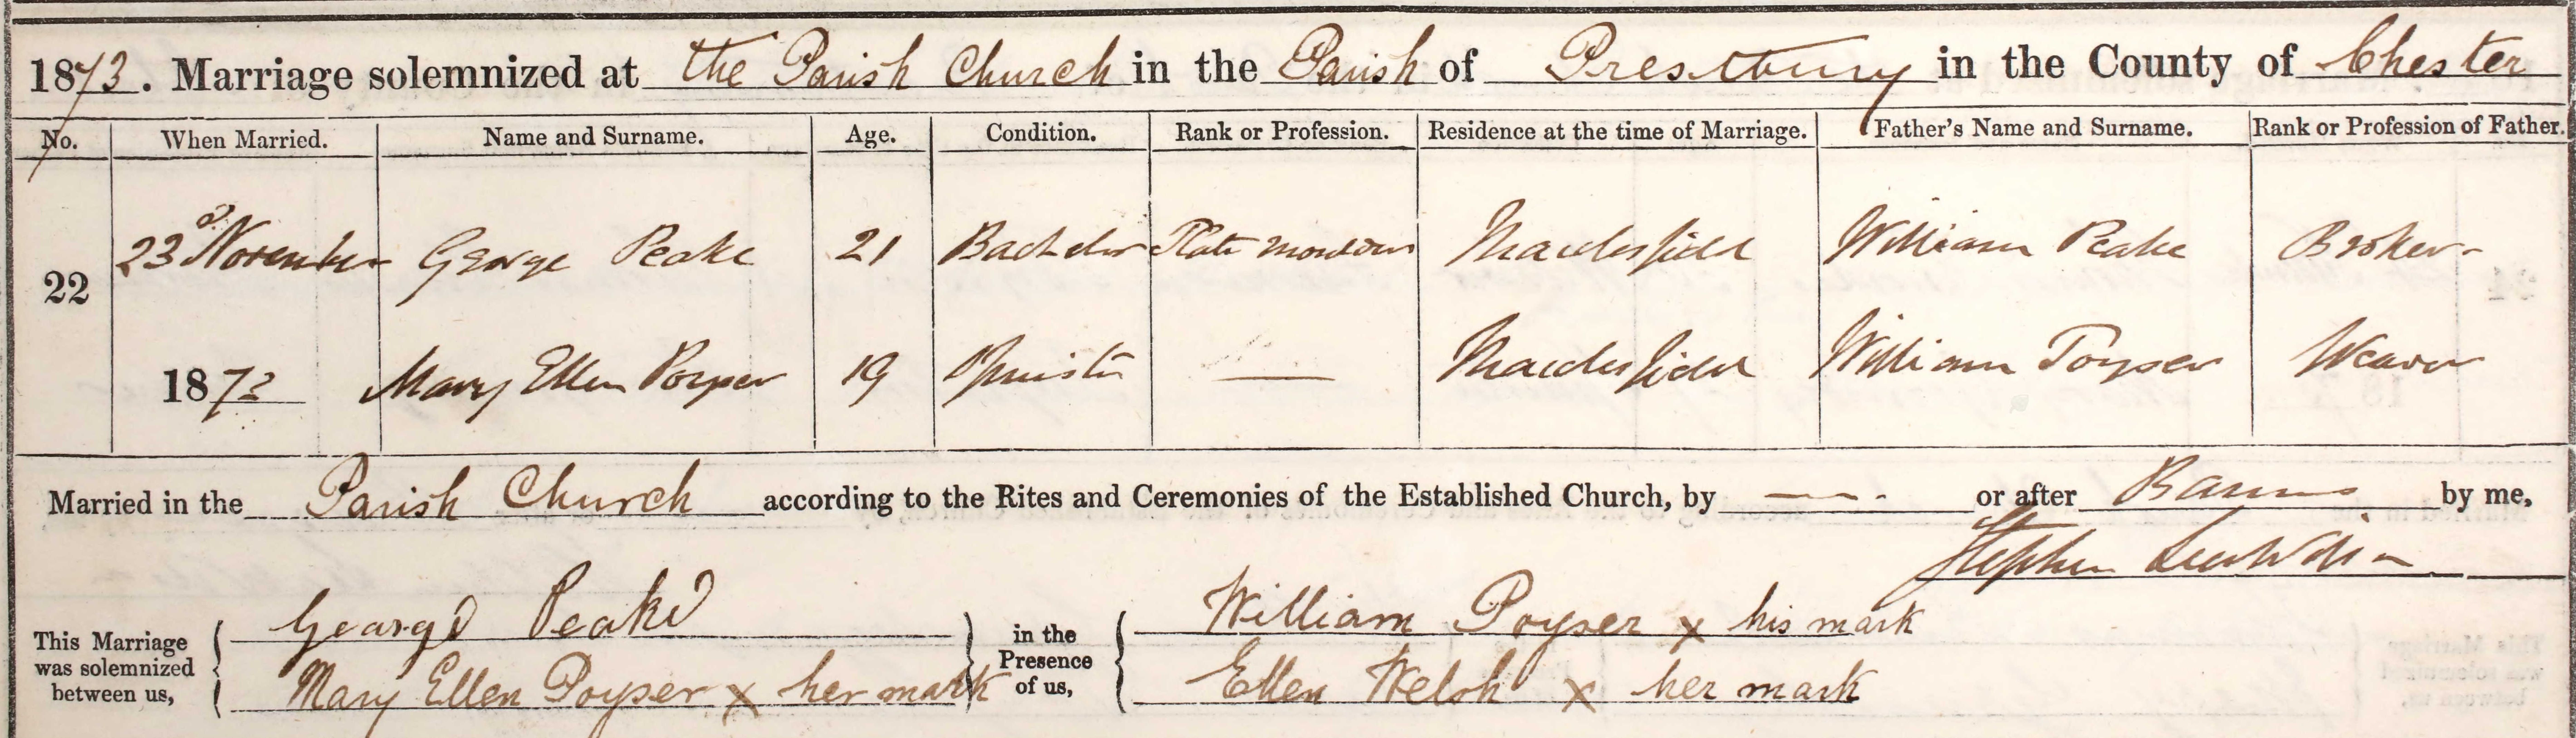 1873. Marriage solemnized at the Parish Church in the Parish of Prestbury in the County of Chester
No. When Married. Name and Surname. Age. Condition. Rank or Profession. Residence at the time of Marriage. Father's Name and Surname. Rank or Profession of Father.
22
23d November George Peake 21 Bachelor Macclesfield William Peake Broker
1873 Mary Ellen Poyser 19 Spinster — Macclesfield William Poyser Weaver
Married in the Parish Church according to the Rites and Ceremonies of the Established Church, by — or after Banns by me,
Stephen
This Marriage was solemnized between us,
George Peake
Mary Ellen Poyser x her mark
in the Presence of us,
William Poyser x his mark
Ellen Welsh x her mark